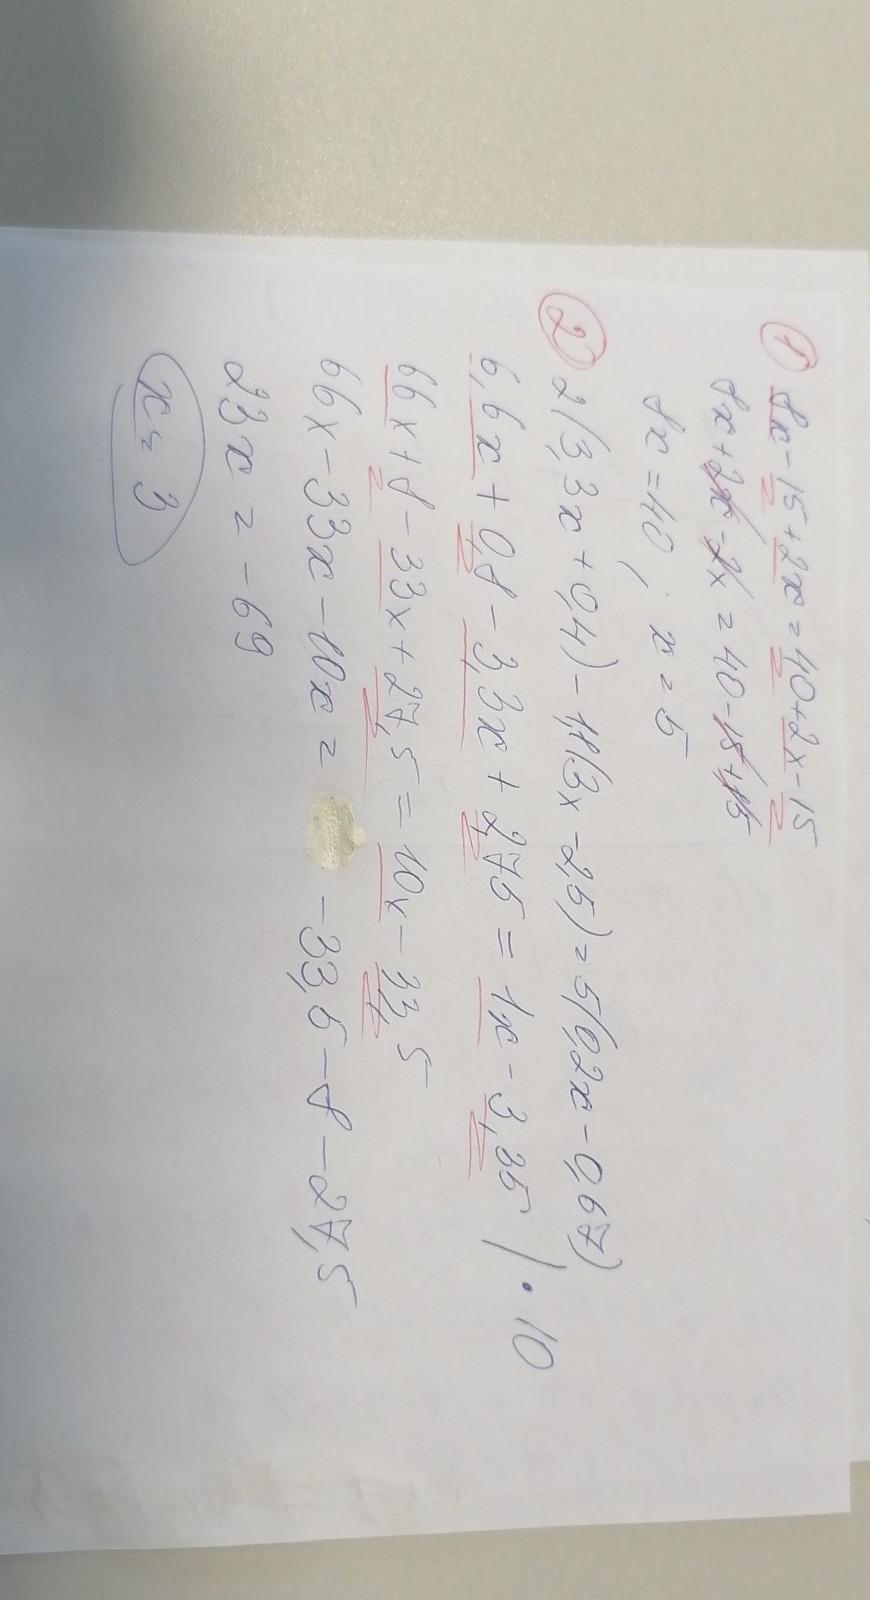 ① 8x - 15 + 2x = 40 + 2x - 15
8x + 2x - 2x = 40 - 15 + 15
8x = 40; x = 5
② 2(3,3x + 0,4) - 1,1(3x - 2,5) = 5(0,2x - 0,67)
6,6x + 0,8 - 3,3x + 2,75 = 1x - 3,35 | · 10
66x + 8 - 33x + 27,5 = 10x - 33,5
66x - 33x - 10x = -33,5 - 8 - 27,5
23x = -69
x = 3